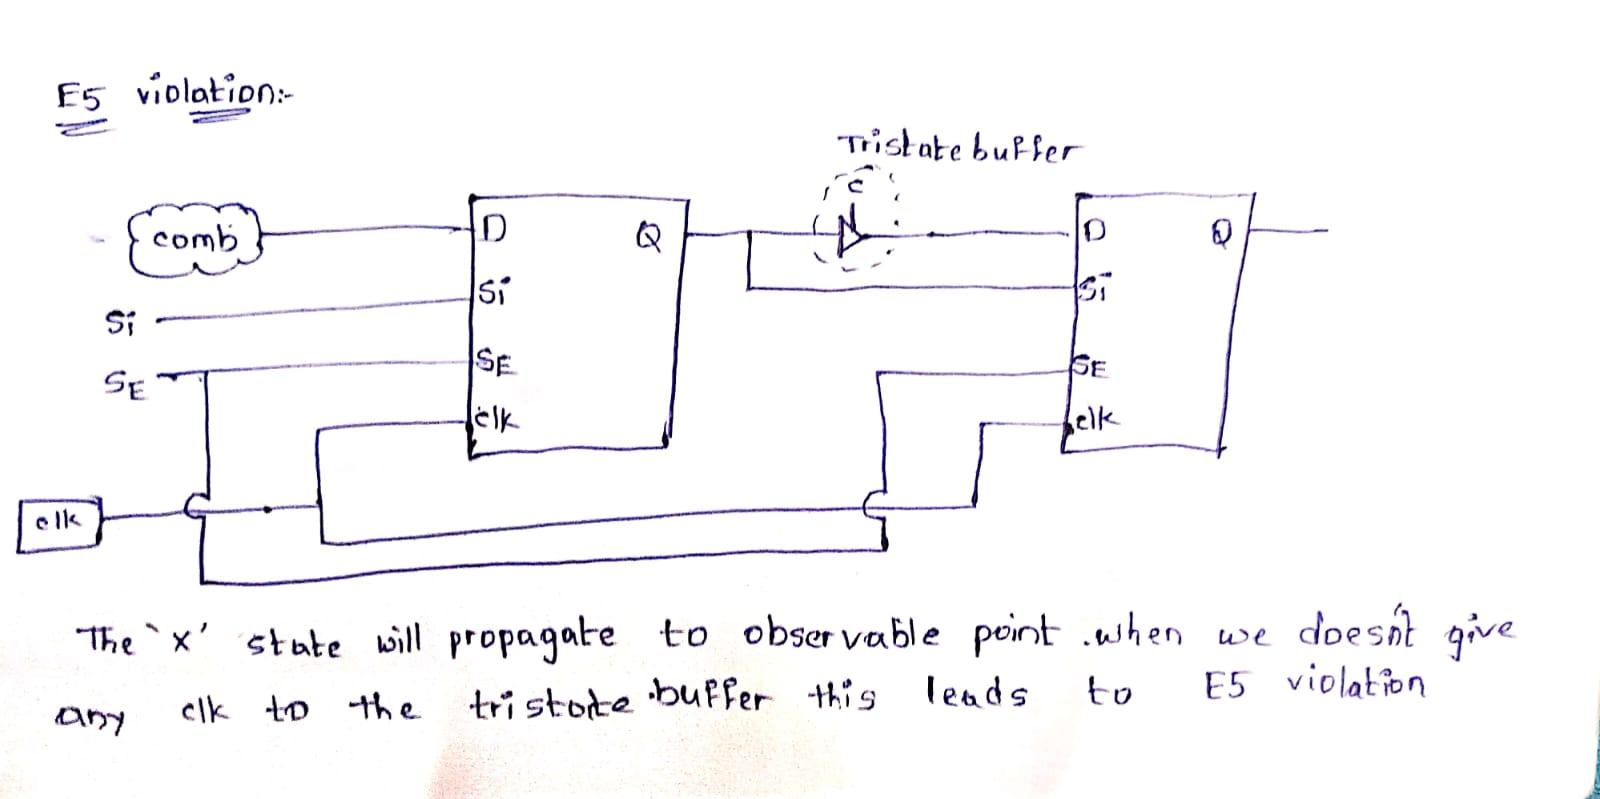 E5 violation:-
Tristate buffer
c
comb
D
Q
Si
SE
clk
D
Q
Si
SE
clk
Si
SE
clk
The 'x' state will propagate to observable point .when we does'nt give
any clk to the tristate buffer this leads to E5 violation